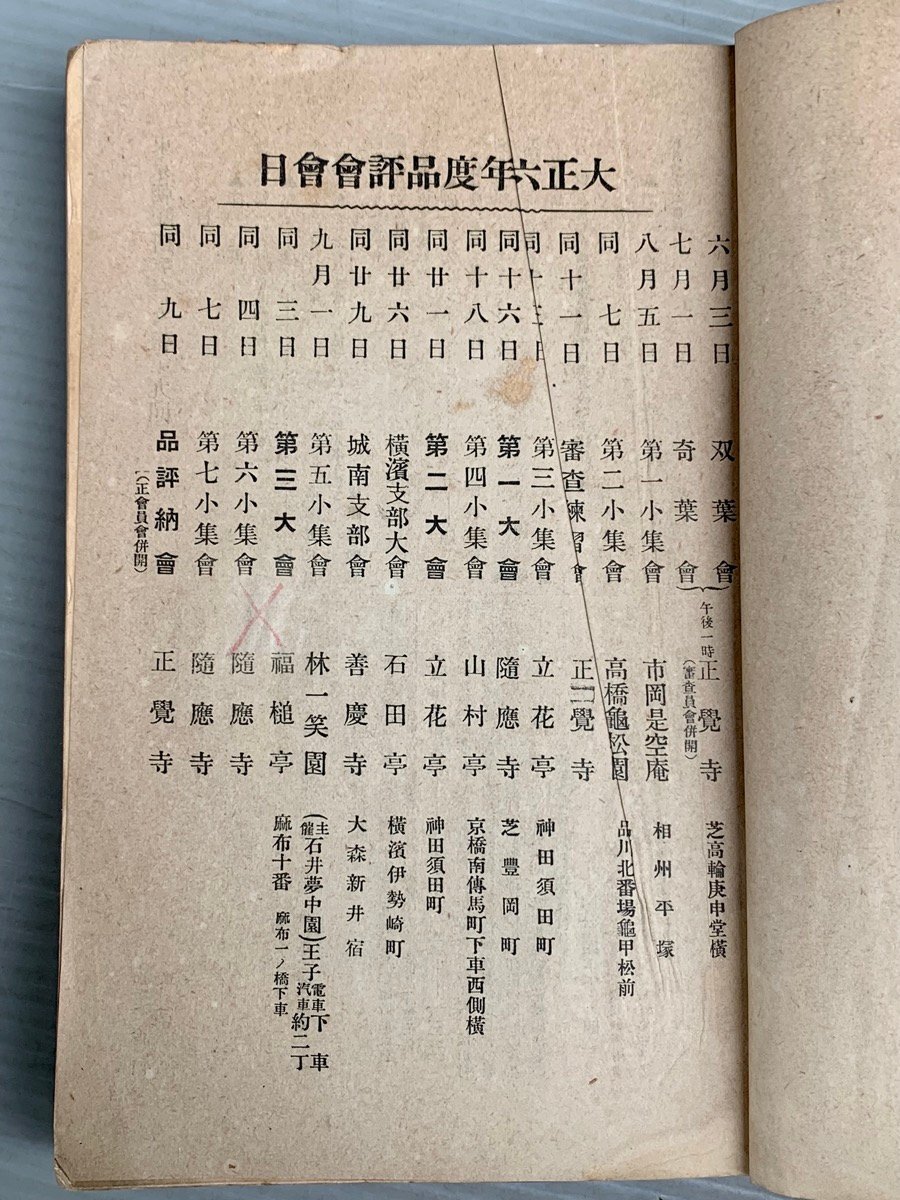 大正六年度品評會會日
六月三日 双葉會 午後一時 正覺寺 芝高輪庚申堂橫
七月一日 奇葉會 (審査員會併開)
八月五日 第一小集會 市岡是空庵 相州平塚
同七日 第二小集會 高橋龜松園 品川北番場龜甲松前
同十一日 審査練習會 正覺寺
同十三日 第三小集會 立花亭 神田須田町
同十六日 第一大會 隨應寺 芝豐岡町
同十八日 第四小集會 山村亭 京橋南傳馬町下車西側橫
同廿一日 第二大會 立花亭 神田須田町
同廿六日 橫濱支部大會 石田亭 橫濱伊勢崎町
同廿九日 城南支部會 善慶寺 大森新井宿
九月一日 第五小集會 林一笑園 (主催石井夢中園)王子電車汽車下車約二丁
同三日 第三大會 福槌亭 麻布十番 麻布一ノ橋下車
同四日 第六小集會 隨應寺
同七日 第七小集會 隨應寺
同九日 品評納會 正覺寺
(正會員會併開)